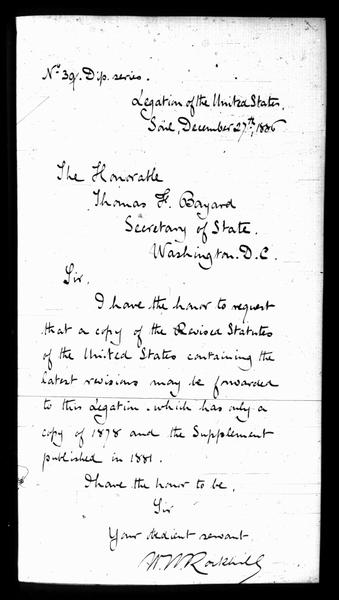 No 39. Dip. series.
Legation of the United States,
Söul, December 27th, 1886
The Honorable
Thomas F. Bayard
Secretary of State.
Washington. D.C.
Sir,
I have the honor to request
that a copy of the Revised Statutes
of the United States containing the
latest revisions may be forwarded
to this Legation. which has only a
copy of 1878 and the Supplement
published in 1881.
I have the honor to be,
Sir
Your obedient servant
W. W. Rockhill